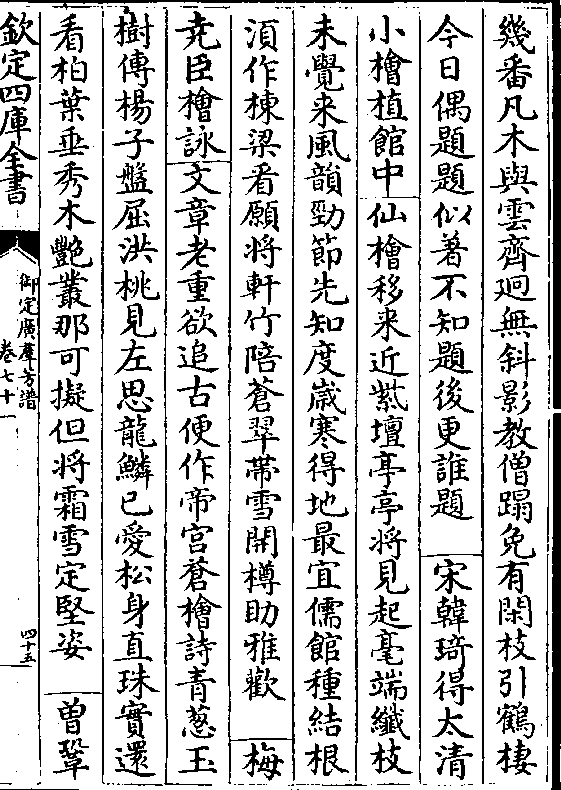 幾番凡木與雲齊迥無斜影教僧蹋免有閑枝引鶴棲
今日偶題題似著不知題後更誰題　宋韓琦得太清
小檜植館中仙檜移来近紫壇亭亭將見起毫端纖枝
未覺来風韻勁節先知度嵗寒得地最宜儒館種結根
湏作棟梁看願將軒竹陪蒼翠帯雪開樽助雅歡　梅
尭臣檜詠文章老重欲追古便作帝宫蒼檜詩青葱玉
樹傳楊子盤屈洪桃見左思龍鱗已愛松身直珠實還
看柏葉垂秀木艷叢那可擬但將霜雪定堅姿　曾鞏
欽定四庫全書
御定廣羣芳譜
卷七十一
四十五